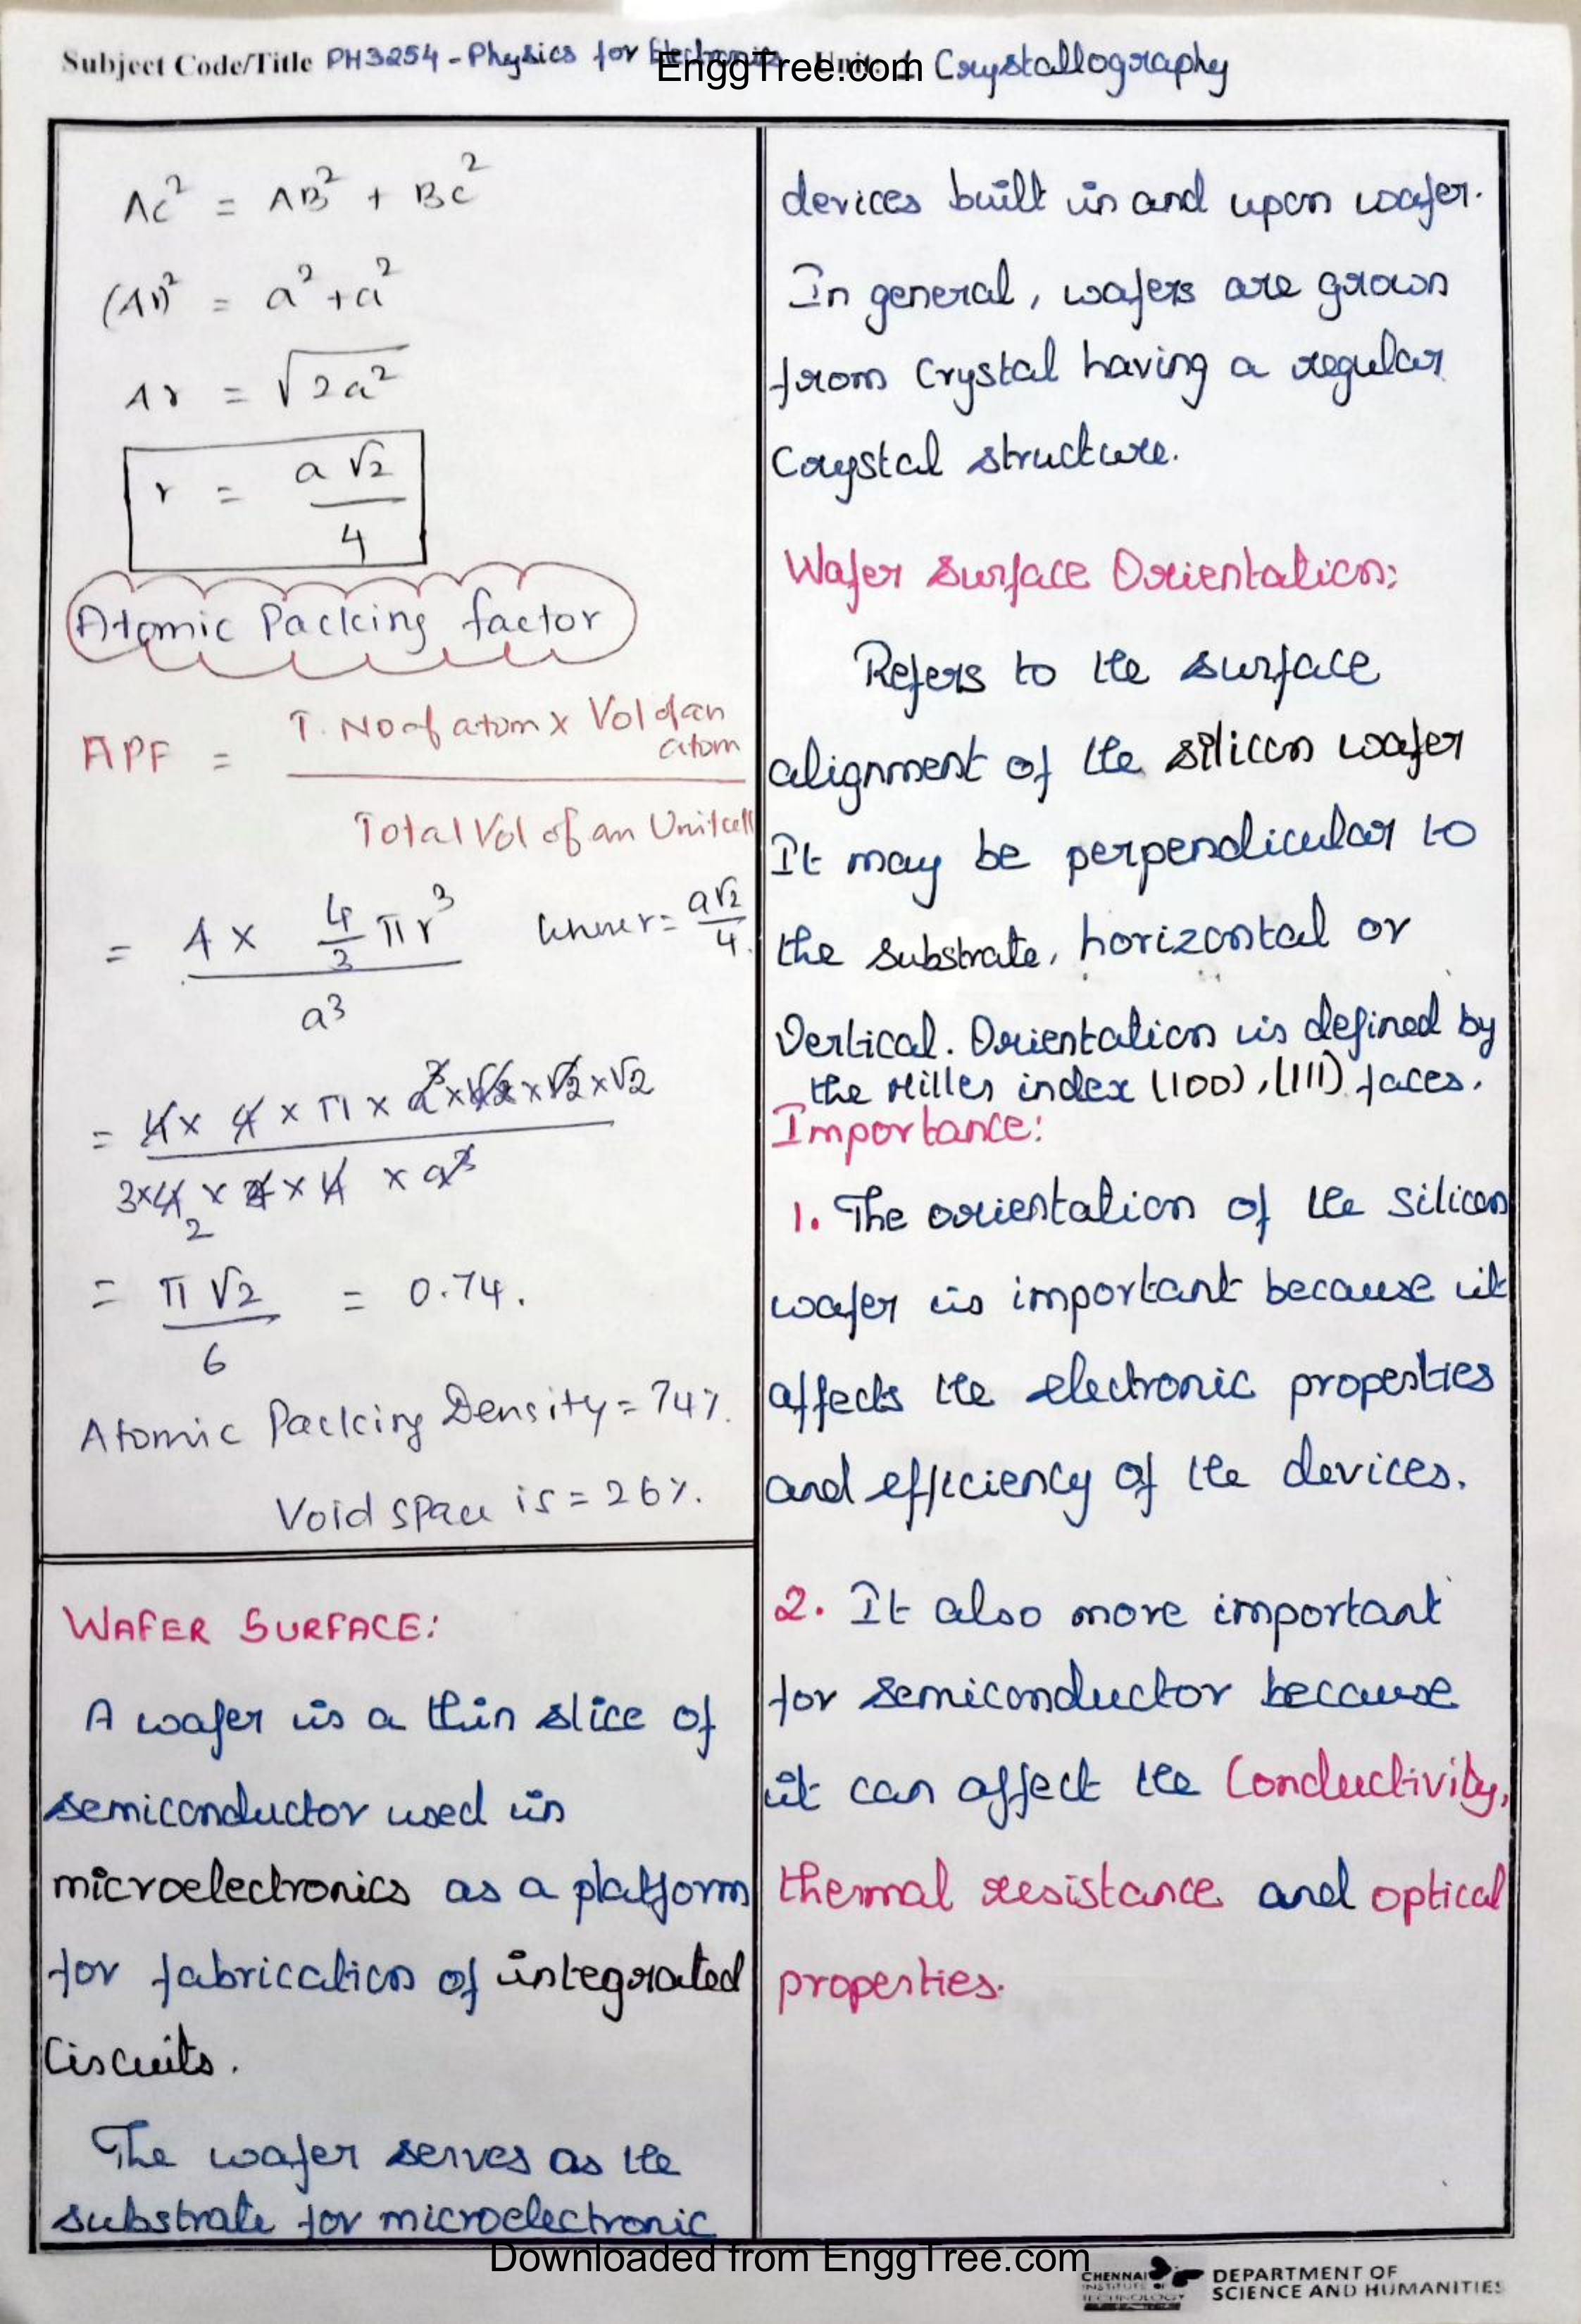 Subject Code/Title PH3254 - Physics for Electronics Unit: 1 Crystallography
EnggTree.com
AC² = AB² + BC²
(4r)² = a² + a²
4r = √2a²
r = a√2 / 4
Atomic Packing factor
APF = T. No of atom x Vol of an atom / Total Vol of an Unitcell
= 4 x 4/3 πr³ / a³ where r = a√2/4.
= 4 x 4 x π x a³ x √2 x √2 x √2 / 3 x 4 x 4 x 4 x a³
2
= π√2 / 6 = 0.74.
Atomic Packing Density = 74%.
Void space is = 26%.
WAFER SURFACE:
A wafer is a thin slice of
semiconductor used in
microelectronics as a platform
for fabrication of integrated
Circuits.
The wafer serves as the
substrate for microelectronic
devices built in and upon wafer.
In general, wafers are grown
from Crystal having a regular
Crystal structure.
Wafer Surface Orientation:
Refers to the surface
alignment of the silicon wafer
It may be perpendicular to
the substrate, horizontal or
Vertical. Orientation is defined by
the Miller index (100), (111) faces.
Importance:
1. The orientation of the silicon
wafer is important because it
affects the electronic properties
and efficiency of the devices.
2. It also more important
for semiconductor because
it can affect the Conductivity,
thermal resistance and optical
properties.
Downloaded from EnggTree.com
CHENNAI
INSTITUTE OF
TECHNOLOGY
DEPARTMENT OF
SCIENCE AND HUMANITIES